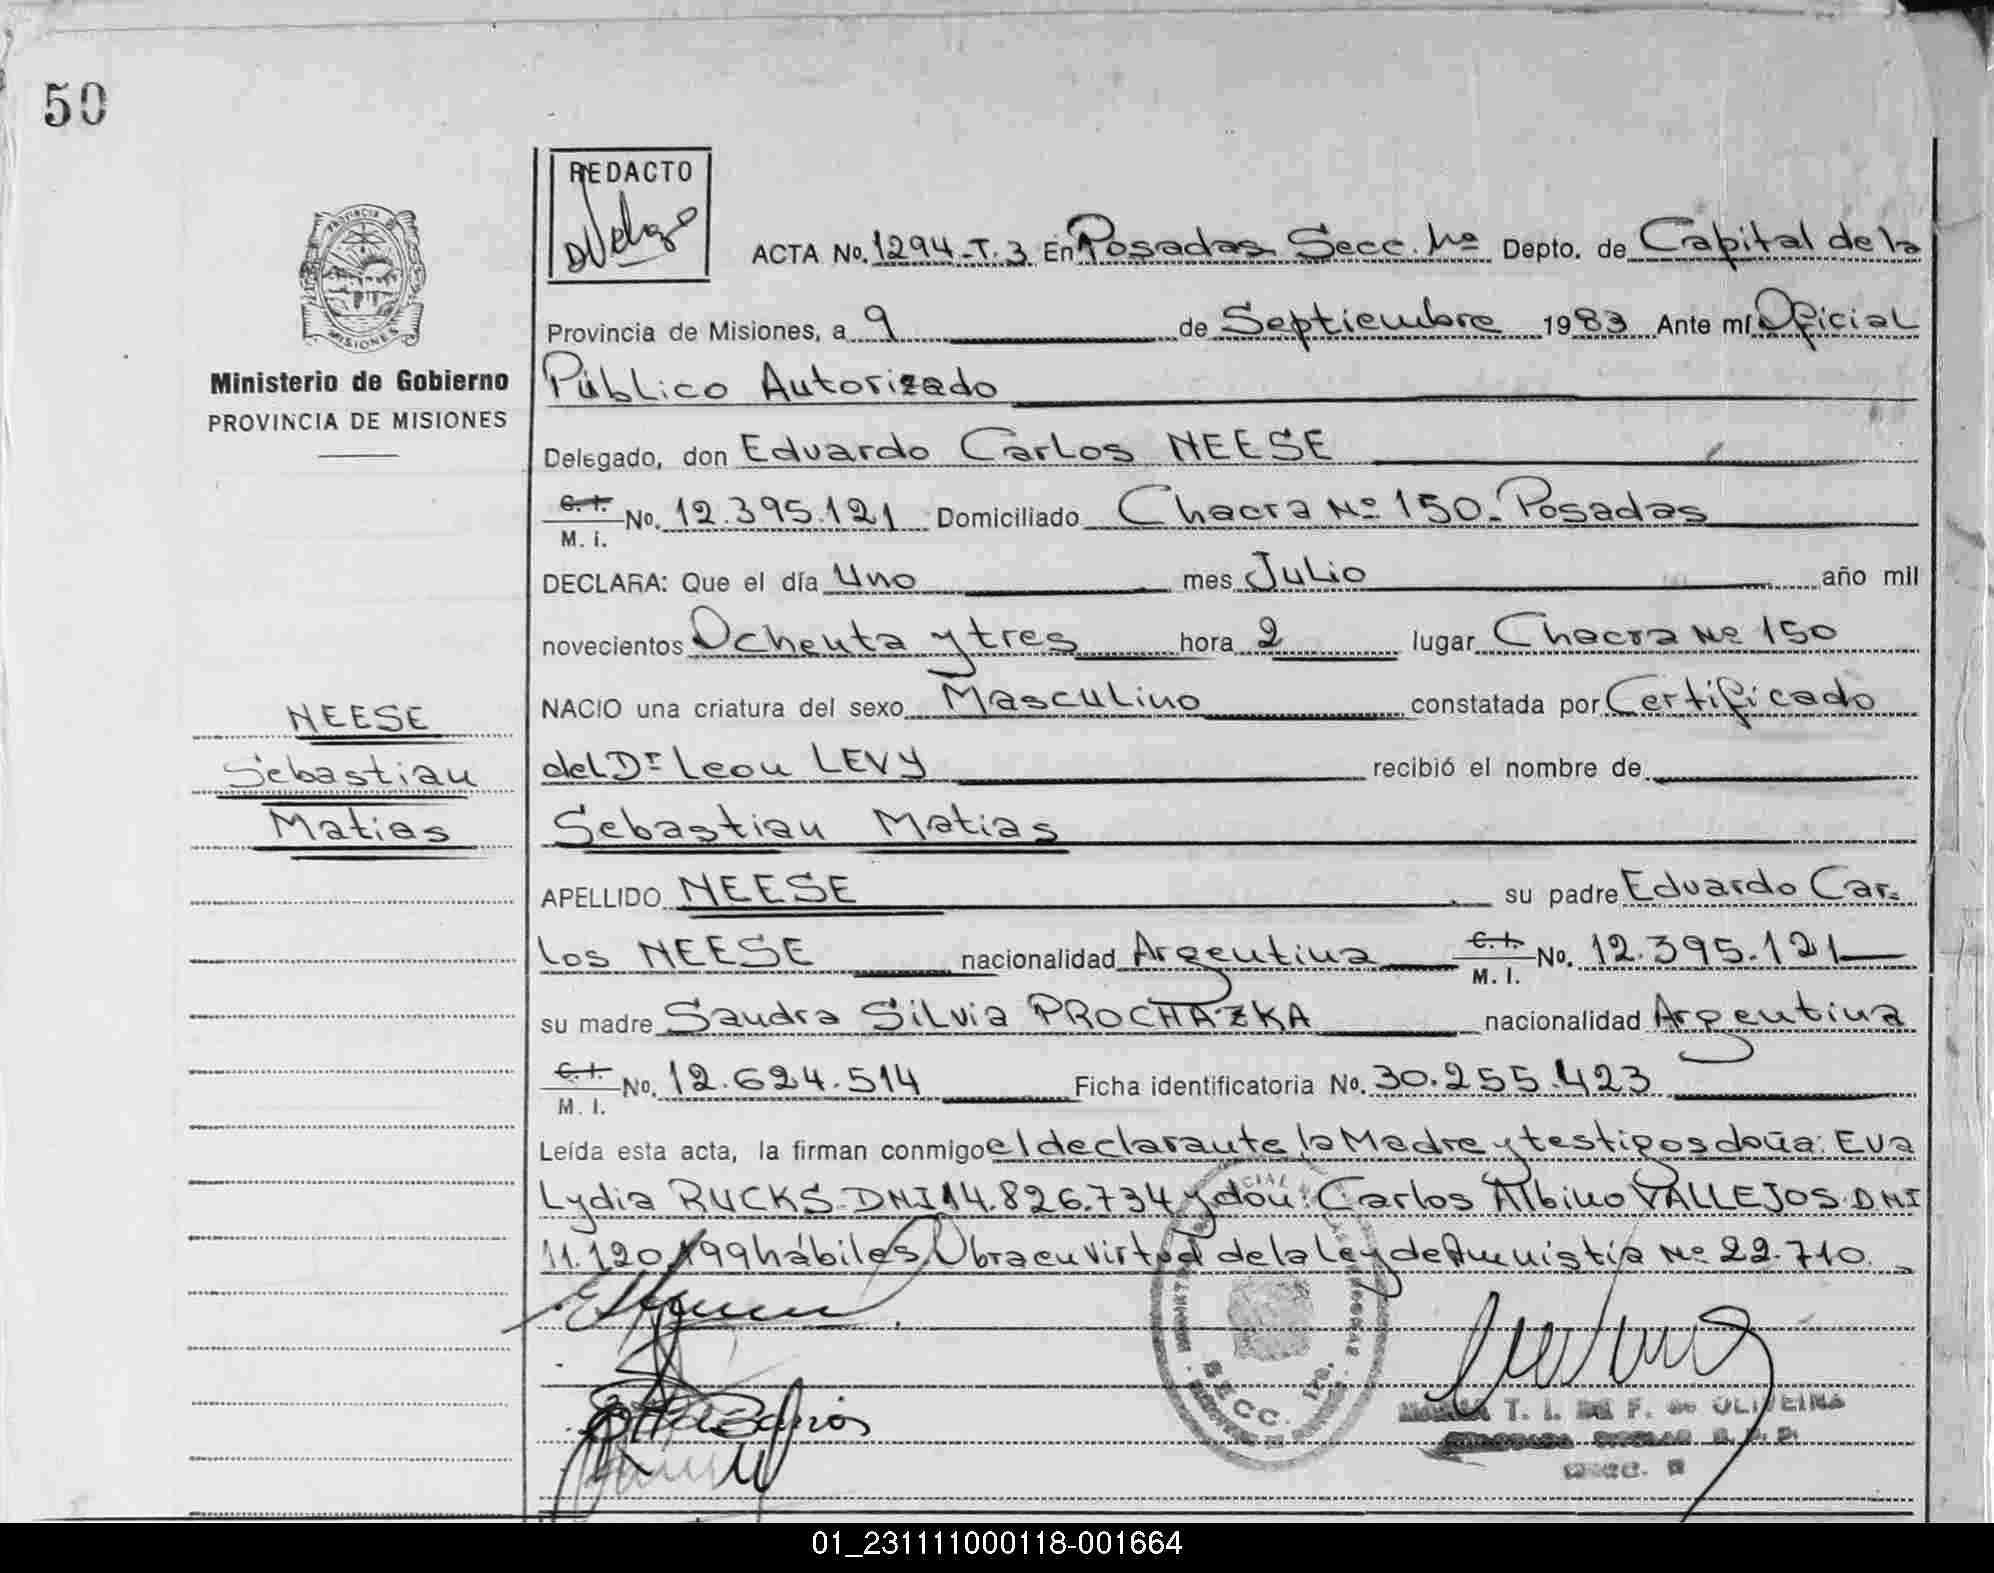 50
REDACTO
ACTA No. 1294-T.3 En Posadas Secc. 1ra Depto. de Capital de la
Provincia de Misiones, a 9 de Septiembre 1983 Ante mí Oficial
Público Autorizado
Ministerio de Gobierno
PROVINCIA DE MISIONES
Delegado, don Eduardo Carlos NEESE
C.I. No. 12.395.121 Domiciliado Chacra Nº 150-Posadas
M. i.
DECLARA: Que el día Uno mes Julio año mil
novecientos Ochenta y tres hora 2 lugar Chacra Nº 150
NACIO una criatura del sexo Masculino constatada por Certificado
NEESE
Sebastian
Matias
del Dr Leon LEVY recibió el nombre de
Sebastian Matias
APELLIDO NEESE su padre Eduardo Car-
los NEESE nacionalidad Argentina C.I. No. 12.395.121
M. I.
su madre Sandra Silvia PROCHAZKA nacionalidad Argentina
C.I. No. 12.624.514 Ficha identificatoria No. 30.255.423
M. I.
Leída esta acta, la firman conmigo el declarante, la Madre y testigos doña: Eva
Lydia RUCKS-DNI 14.826.734 y don: Carlos Albino VALLEJOS-DNI
11.120.199 hábiles, Obra en virtud de la Ley de Amnistía Nº 22.710.
SECC. 1ra.
T. I. DE F. de OLIVEIRA
01_231111000118-001664